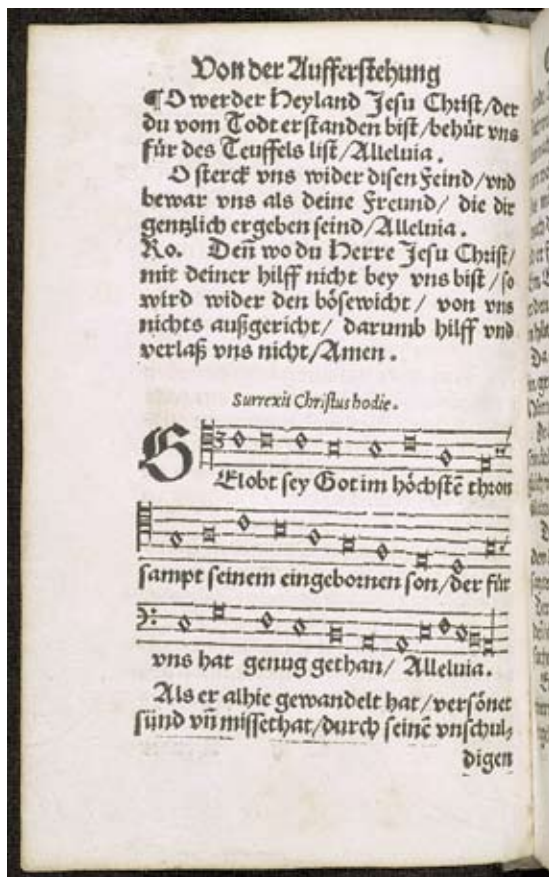 Von der Aufferstehung
¶ O werder Heyland Jesu Christ/der
du vom Todt erstanden bist/behüt vns
für des Teuffels list/Alleluia.
O sterck vns wider disen Feind/vnd
bewar vns als deine Freund/ die dir
gentzlich ergeben seind/Alleluia.
Ro. Deñ wo du Herre Jesu Christ/
mit deiner hilff nicht bey vns bist/so
wird wider den bösewicht/ von vns
nichts außgericht/ darumb hilff vnd
verlaß vns nicht/Amen.
Surrexit Christus hodie.
GElobt sey Got im höchstē thron
sampt seinem eingebornen son/der für
vns hat genug gethan/ Alleluia.
Als er alhie gewandelt hat/versönet
sünd vñ missethat/durch seinē vnschul⸗
digen